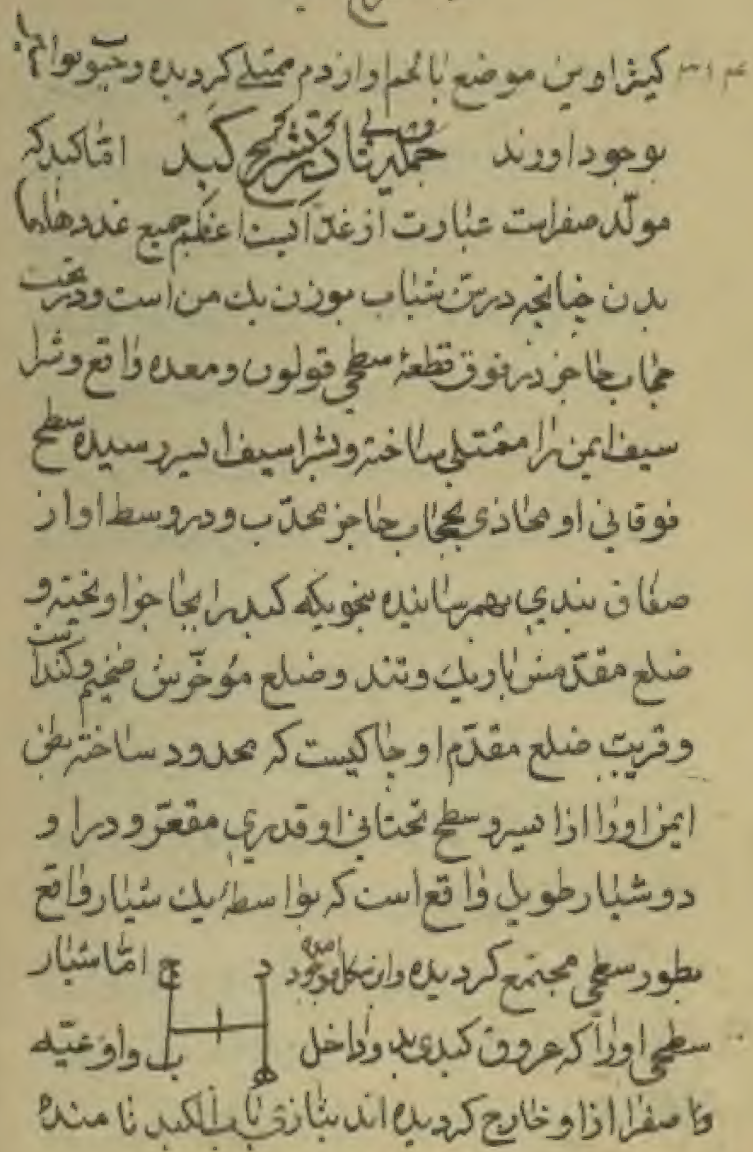 کیژاوین موضع بالحم او از دم ممتلی کردیده و
بوجود اورند جمله بیتا در تشریح کبد اما کبد که
مولد صفراست عبارت از غدا ئیست اعظم جمیع غددهای
بدن چنانچه در سن شباب بوزن یک من است ودر تحت
حجاب حاجز در فوق قطعهٔ سطحی قولون و معده واقع وشرا
سیف ایمن را ممتلی ساخته وبشراسیف ایسر رسیده سطح
فوقانی او محاذی بحجاب حاجز محدّب ودر وسط او از
صفاق بندی بهم رسانیده بنحویکه کبد را بجاجز اویخته و
ضلع مقدّمش باریک وتند و ضلع مؤخّرش ضخیم وکند است
و قریب ضلع مقدّم او چاکیست که محدود ساخته بطن
ایمن اورا از ایسر و سطح تحتانی او قدری مقعّر ودر او
دو شیار طویل واقع است که بواسطهٔ یک شیار واقع
بطور سطحی مجتمع کردیده واز شکل موجود امده د ج اما شیار
سطحی اورا که عروق کبدی بد وداخل ه ب واوعیه
صفرا از او خارج کردیده اند بتازی باب الکبد نامند